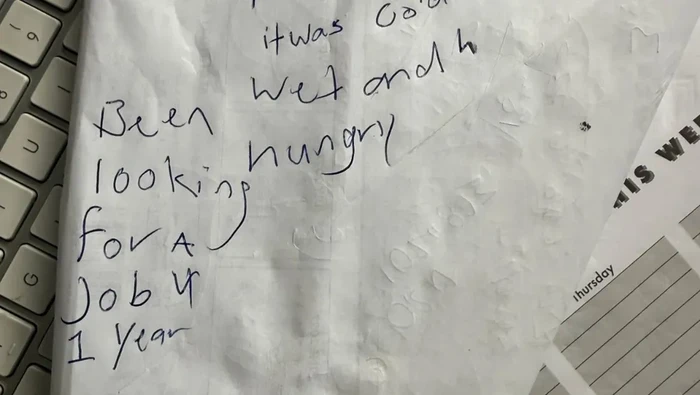 it was
wet and h
hungry
Been
looking
for A
Job 4
1 Year
Thursday
U
G
9